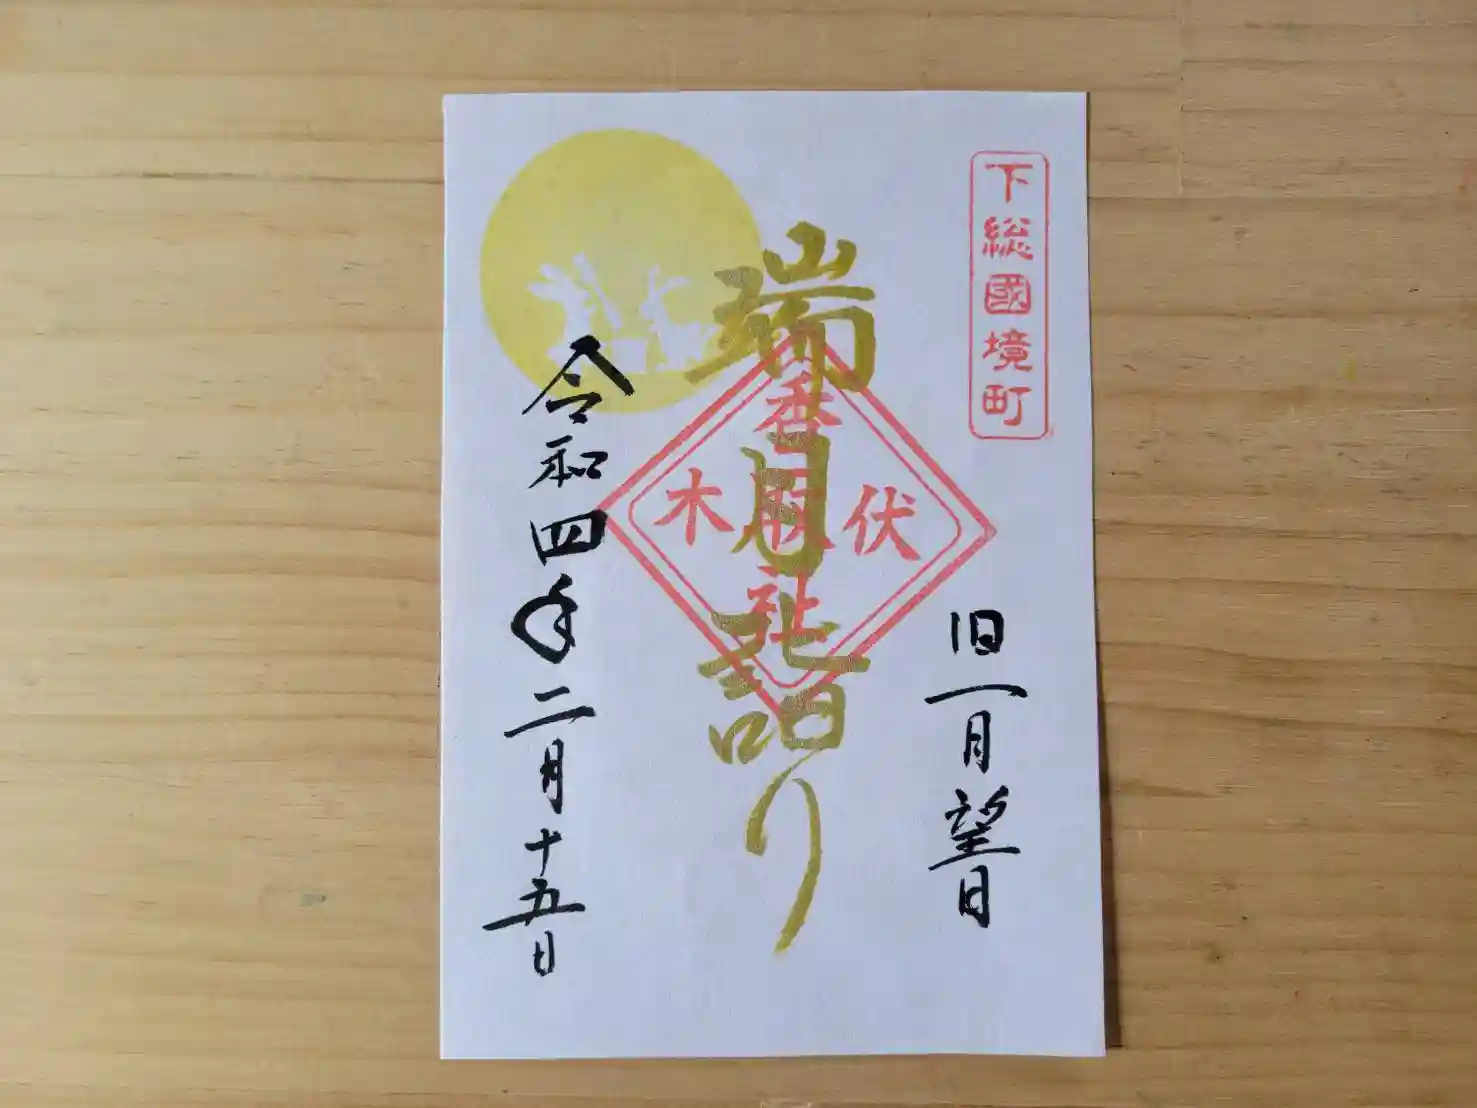 下総國境町
旧一月望日
端月詣り
伏木
香取社
令和四年二月十五日